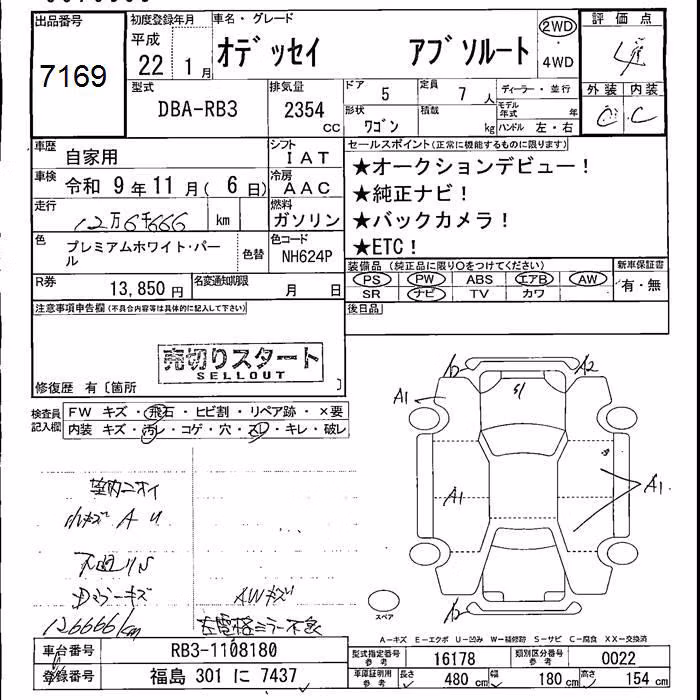 出品番号
7169
初度登録年月
平成
22 1月
車名・グレード
オデッセイ アブソルート
2WD
・
4WD
評価点
4
外装 内装
C C
型式
DBA-RB3
排気量
2354
CC
ドア 5
定員 7人
ディーラー・並行
形状
ワゴン
積載
kg
モデル年式 年
ハンドル 左・右
車歴
自家用
シフト
IAT
車検
令和 9年11月( 6日)
冷房
AAC
走行
12万6千666 km
燃料
ガソリン
色
プレミアムホワイト・パール
色替
色コード
NH624P
R券
13,850円
名変通知期限
月 日
セールスポイント(正常に機能するものに限ります)
★オークションデビュー!
★純正ナビ!
★バックカメラ!
★ETC!
装備品(純正品に限り○をつけてください)
PS PW ABS エアB AW
SR ナビ TV カワ
新車保証書
有・無
後日品
注意事項申告欄(不具合内容等は具体的に記入して下さい)
売切りスタート
SELLOUT
修復歴 有〔箇所 〕
検査員
記入欄
FW キズ・飛石・ヒビ割・リペア跡・×要
内装 キズ・汚レ・コゲ・穴・スレ・キレ・破レ
室内ニオイ
小キズ A U
Dミラーキズ
AWキズ
126666km
右電格ミラー不良
A2
A1
A1
A1
スペア
A-キズ E-エクボ U-凹み W-補修跡 S-サビ C-腐食 XX-交換済
車台番号
RB3-1108180
登録番号
福島 301 に 7437
型式指定番号
参考
16178
類別区分番号
参考
0022
車庫証明用
参考
長さ 480 cm
幅 180 cm
高さ 154 cm